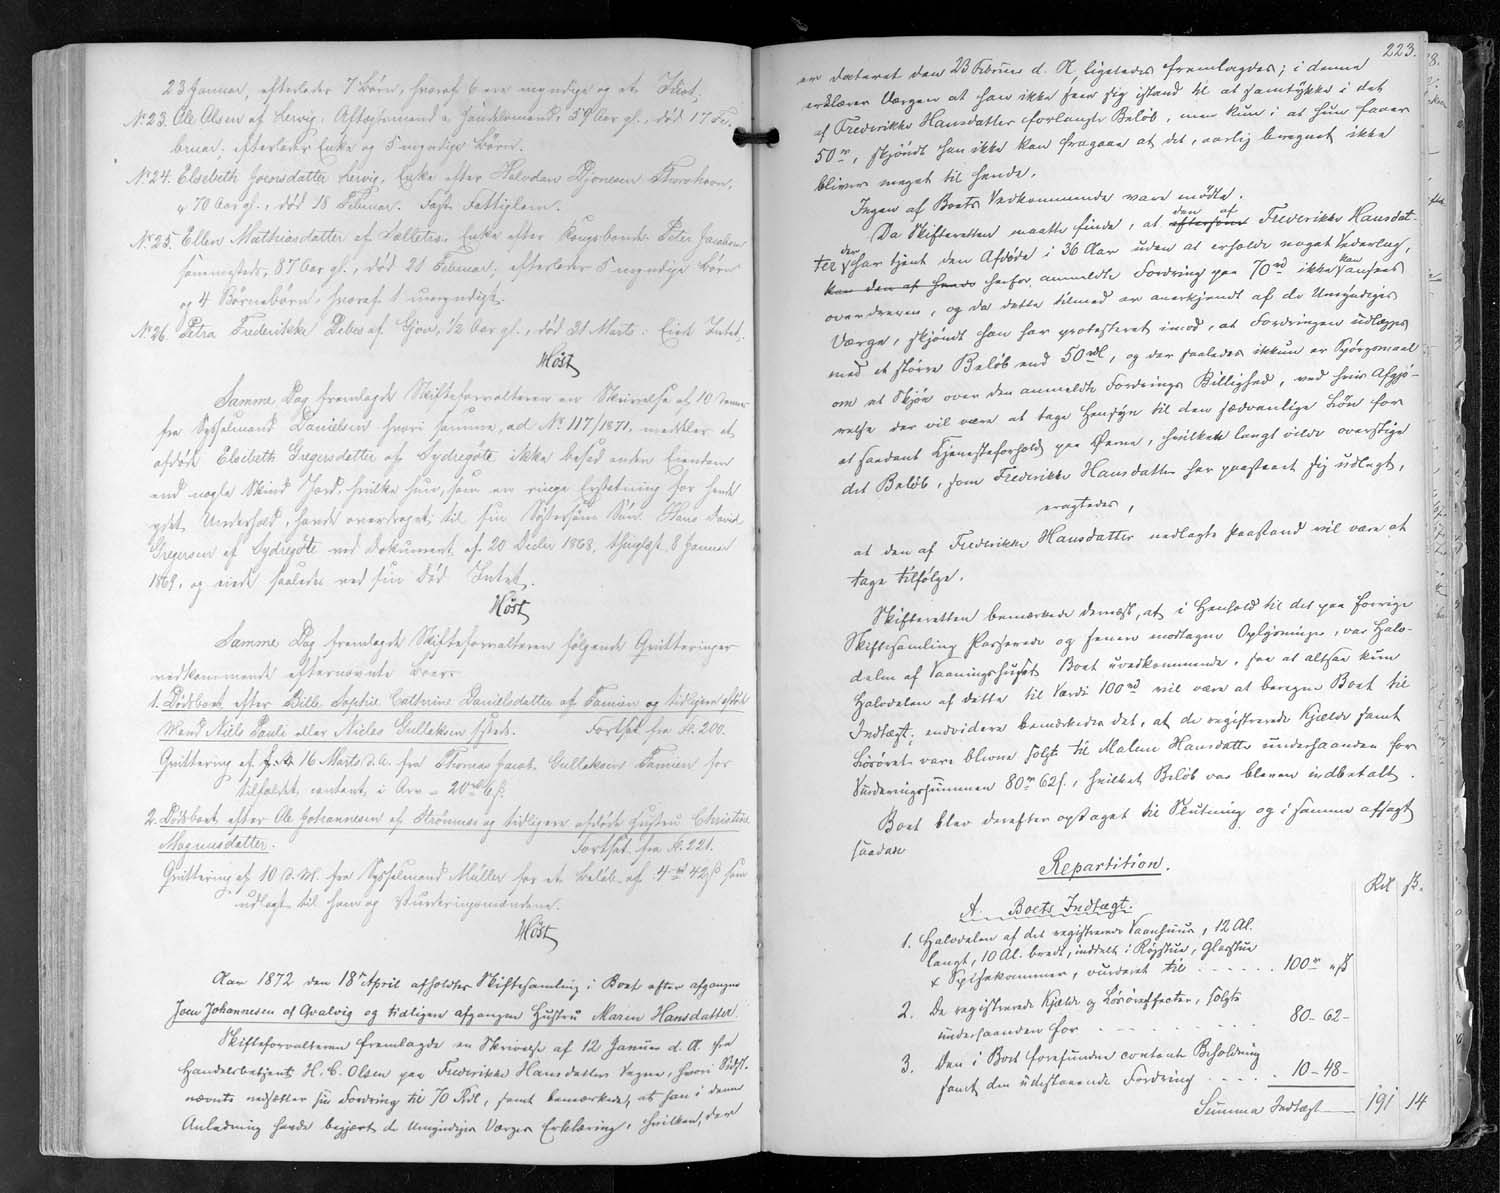 23 Januar, efterlader 7 Børn, hvoraf 6 ere myndige og et Idiot.
No 23. Ole Olsen af Leirvig, Aftægtsmand, 59 Aar gl., død 17 Fe-
bruar, efterlader Enke og 5 myndige Børn.
No 24. Elsebeth Joensdatter Leirvig, Enke efter Halvdan Djonesen Thorshavn,
70 Aar gl., død 18 Februar. Fattiglem.
No 25. Ellen Mathiasdatter af Enke efter Kongsbonde Peter Jacobsen
sammesteds, 87 Aar gl., død 21 Februar, efterlader 5 myndige Børn
og 4 Børnebørn, hvoraf 1 umyndigt.
No 26. Petra Frederikke Debes af Gjov, 1/2 Aar gl., død 31 Marts. Eiet Intet.
Høst
Samme Dag fremlagde Skifteforvalteren en Skrivelse af 10 dennes
fra Sysselmand Danielsen hvori samme, ad No 117/1871, meddeler at
afdøde Elsebeth Gregersdatter af Sydregøte ikke besad anden Eiendom
end nogle Skind Jord, hvilke hun, som en ringe Erstatning for hende
ydet Underhold, havde overdraget til sin Søstersøns Søn Hans David
Gregersen af Sydregøte ved Dokument af 20 Decbr 1868, thinglyst 8 Januar
1869, og eiede saaledes ved sin Død Intet.
Høst
Samme Dag fremlagde Skifteforvalteren følgende Qvitteringer
vedkommende efternævnte Boer:
1. Dødsboet efter Bille Sophie Cathrine Danielsdatter af Famien og tidligere afdøde
Mand Niels Pauli eller Nicles Gulleksen systeds. Fortsat fra Fl. 200.
Qvittering af 16 Marts d. A. fra Thomas Jacob Gulleksen Famien for
tilfaldet contant i Arv = 20 rd 6 ß.
2. Dødsboet efter Ole Johannesen af Strømnæs og tidligere afdøde Hustru Christine
Magnusdatter. Fortsat fra Fl. 221.
Qvittering af 10 d. M. fra Sysselmand Müller for et Beløb af 4 rd 42 ß som
udlagt til ham og Vurderingsmændene.
Høst
Aar 1872 den 18de April afholdtes Skiftesamling i Boet efter afgangne
Joen Johannesen af Qvalvig og tidligere afgangne Hustru Maren Hansdatter.
Skifteforvalteren fremlagde en Skrivelse af 12 Januar d. A. fra
Handelsbetjent H. C. Olsen paa Frederikke Hansdatters Vegne, hvori Sidst-
nævnte nedsætter sin Fordring til 70 Rdl, samt bemærkede, at han i denne
Anledning havde begjært de Umyndiges Værges Erklæring, hvilken, der
223.
er dateret den 23 Februar d. A, ligeledes fremlagdes; i denne
erklærer Værgen at han ikke seer sig istand til at samtykke i det
af Frederikke Hansdatter forlangte Beløb, men kun i at hun faaer
50 rd, skjøndt han ikke kan fragaae at det, aarlig beregnet ikke
bliver meget til hende.
Ingen af Boets Vedkommende vare mødte.
Da Skifteretten maatte finde, at den af eftersom Frederikke Hansdat-
ter der har tjent den Afdøde i 36 Aar uden at erholde noget Vederlag,
kan den af hende herfor anmeldte Fordring paa 70 rd ikke kan ansees
overdreven, og da dette tilmed er anerkjendt af de Umyndiges
Værge, skjøndt han har protesteret imod, at Fordringen udlægges
med et større Beløb end 50 rdl, og der saaledes ikkun er Spørgsmaal
om et Skjøn over den anmeldte Fordrings Billighed, ved hvis Afgjø-
relse der vil være at tage Hensyn til den sædvanlige Løn for
et saadant Tjenesteforhold paa Øerne, hvilken langt vilde overstige
det Beløb, som Frederikke Hansdatter har paastaaet sig udlagt,
eragtedes,
at den af Frederikke Hansdatter nedlagte Paastand vil være at
tage tilfølge.
Skifteretten bemærkede dernæst, at i Henhold til det paa forrige
Skiftesamling Passerede og senere modtagne Oplysninger, var Halv-
delen af Vaaningshuset Boet uvedkommende, saa at altsaa kun
Halvdelen af dette til Værdi 100 rd vil være at beregne Boet til
Indtægt; endvidere bemærkedes det, at de registrerede Kjælde samt
Løsøret vare blevne solgte til Malene Hansdatter underhaanden for
Vurderingssummen 80 rd 62 ß, hvilket Beløb var bleven indbetalt.
Boet blev derefter optaget til Slutning og i samme afsagt
saadan
Repartition.
Rdl ß.
A. Boets Indtægt.
1. Halvdelen af det registrerede Vaanhuus, 12 Al.
langt, 10 Al. bredt, inddelt i Røgstue, Glasstue
& Spisekammer, vurderet til . . . . . . 100 rd „ ß
2. De registrerede Kjælde og Løsøreeffecter, solgte
underhaanden for . . . . . . 80 - 62 -
3. Den i Boet forefundne contante Beholdning
samt den udestaaende Fordring . . . . . 10 - 48 -
Summa Indtægt 191 14